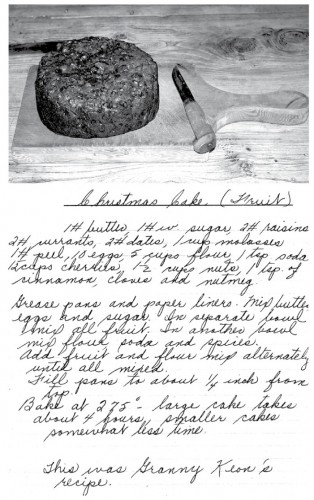 Christmas Cake (Fruit)
1# butter, 1# w. sugar, 2# raisins
2# currants, 2# dates, 1 cup molasses
1# peel, 10 eggs, 5 cups flour, 1 tsp soda
2 cups cherries, 1½ cups nuts, 1 tsp. of
cinnamon, cloves and nutmeg.
Grease pans and paper liners. Mix butter
eggs and sugar. In separate bowl
mix all fruit. In another bowl
mix flour soda and spices.
Add fruit and flour mix alternately
until all mixed.
Fill pans to about ¼ inch from
top.
Bake at 275° - large cake takes
about 4 hours, smaller cakes
somewhat less time.
This was Granny Keon's
recipe.